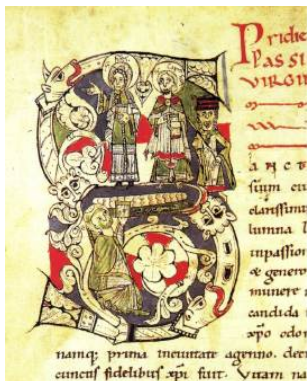 Pridie
PASSI
VIRGIN
ANCT
sium
clarissimu
lumna
inpassion
& genero
munere
candida
xpo odor
namq; prima ineuntate agenno. deri
cunctis fidelibus xpi fuit. Vitam na